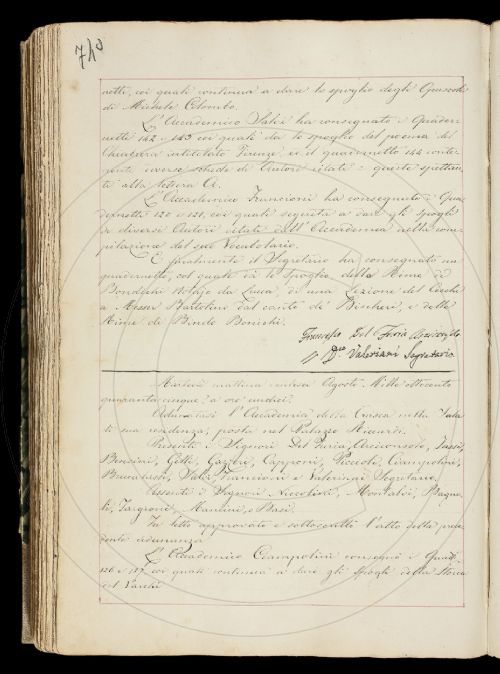 740
netti, coi quali continua a dare lo spoglio degli Opuscoli
di Michele Colombo.
L'Accademico Valié ha consegnato i Quader-
netti 142 e 143 coi quali dà lo spoglio del poema del
Chiabrera intitolato Firenze, ed il quadernetto 144 conte-
nente diverse schede di Oratori citati e queste spettan-
ti alla lettera A.
L'Accademico Franceschi ha consegnato i Qua-
dernetti 120 e 121, coi quali seguita a dare gli spogli
di diversi Autori citati dall'Accademia nella com-
pilazione del suo Vocabolario.
E finalmente il Segretario ha consegnato un
quadernetto, col quale dà lo spoglio delle Rime di
Bonagiunta da Lucca, di una Lezione del Cecchi
a Messer Bartolino dal canto de' Bischeri, e delle
Rime di Bindo Bonichi.
Francesco Del Furia Arciconsolo
D.co Valeriani Segretario
Martedì mattina Agosto Mille ottocento
quaranta cinque, a ore undici.
Adunatasi l'Accademia della Crusca nella Sala
di sua residenza, posta nel Palazzo Riccardi.
Presenti i Signori Del Furia Arciconsolo,
Bencini, Gelli, Gazzeri, Capponi, Puccioti, Ciampolini,
Valeriani Segretario
Assenti i Signori Niccolini, Montalvi, Bagno-
li, Targioni, Mannini, e Basi.
Fu letto approvato e sottoscritto l'atto della prece-
dente adunanza
L'Accademico Ciampolini consegnò i Quad.
126 e 127 coi quali continua a dare gli spogli della Storia
del Varchi